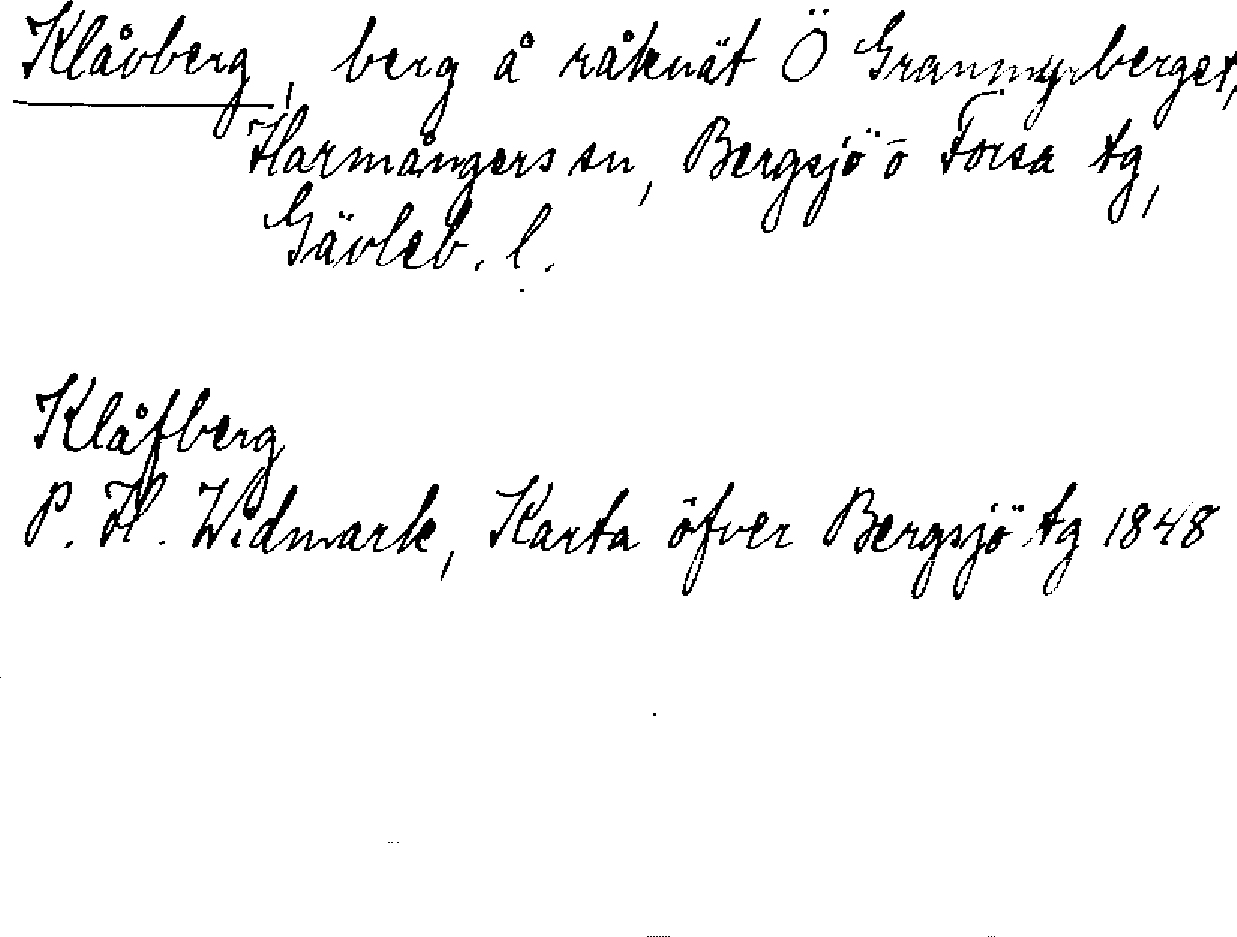 Klåvberg, berg å råknät Ö Granmyrberget,
Harmångers sn, Bergsjö o Forsa tg,
Gävleb. l.
Klåfberg
P. H. Widmark, Karta öfver Bergsjö tg 1848